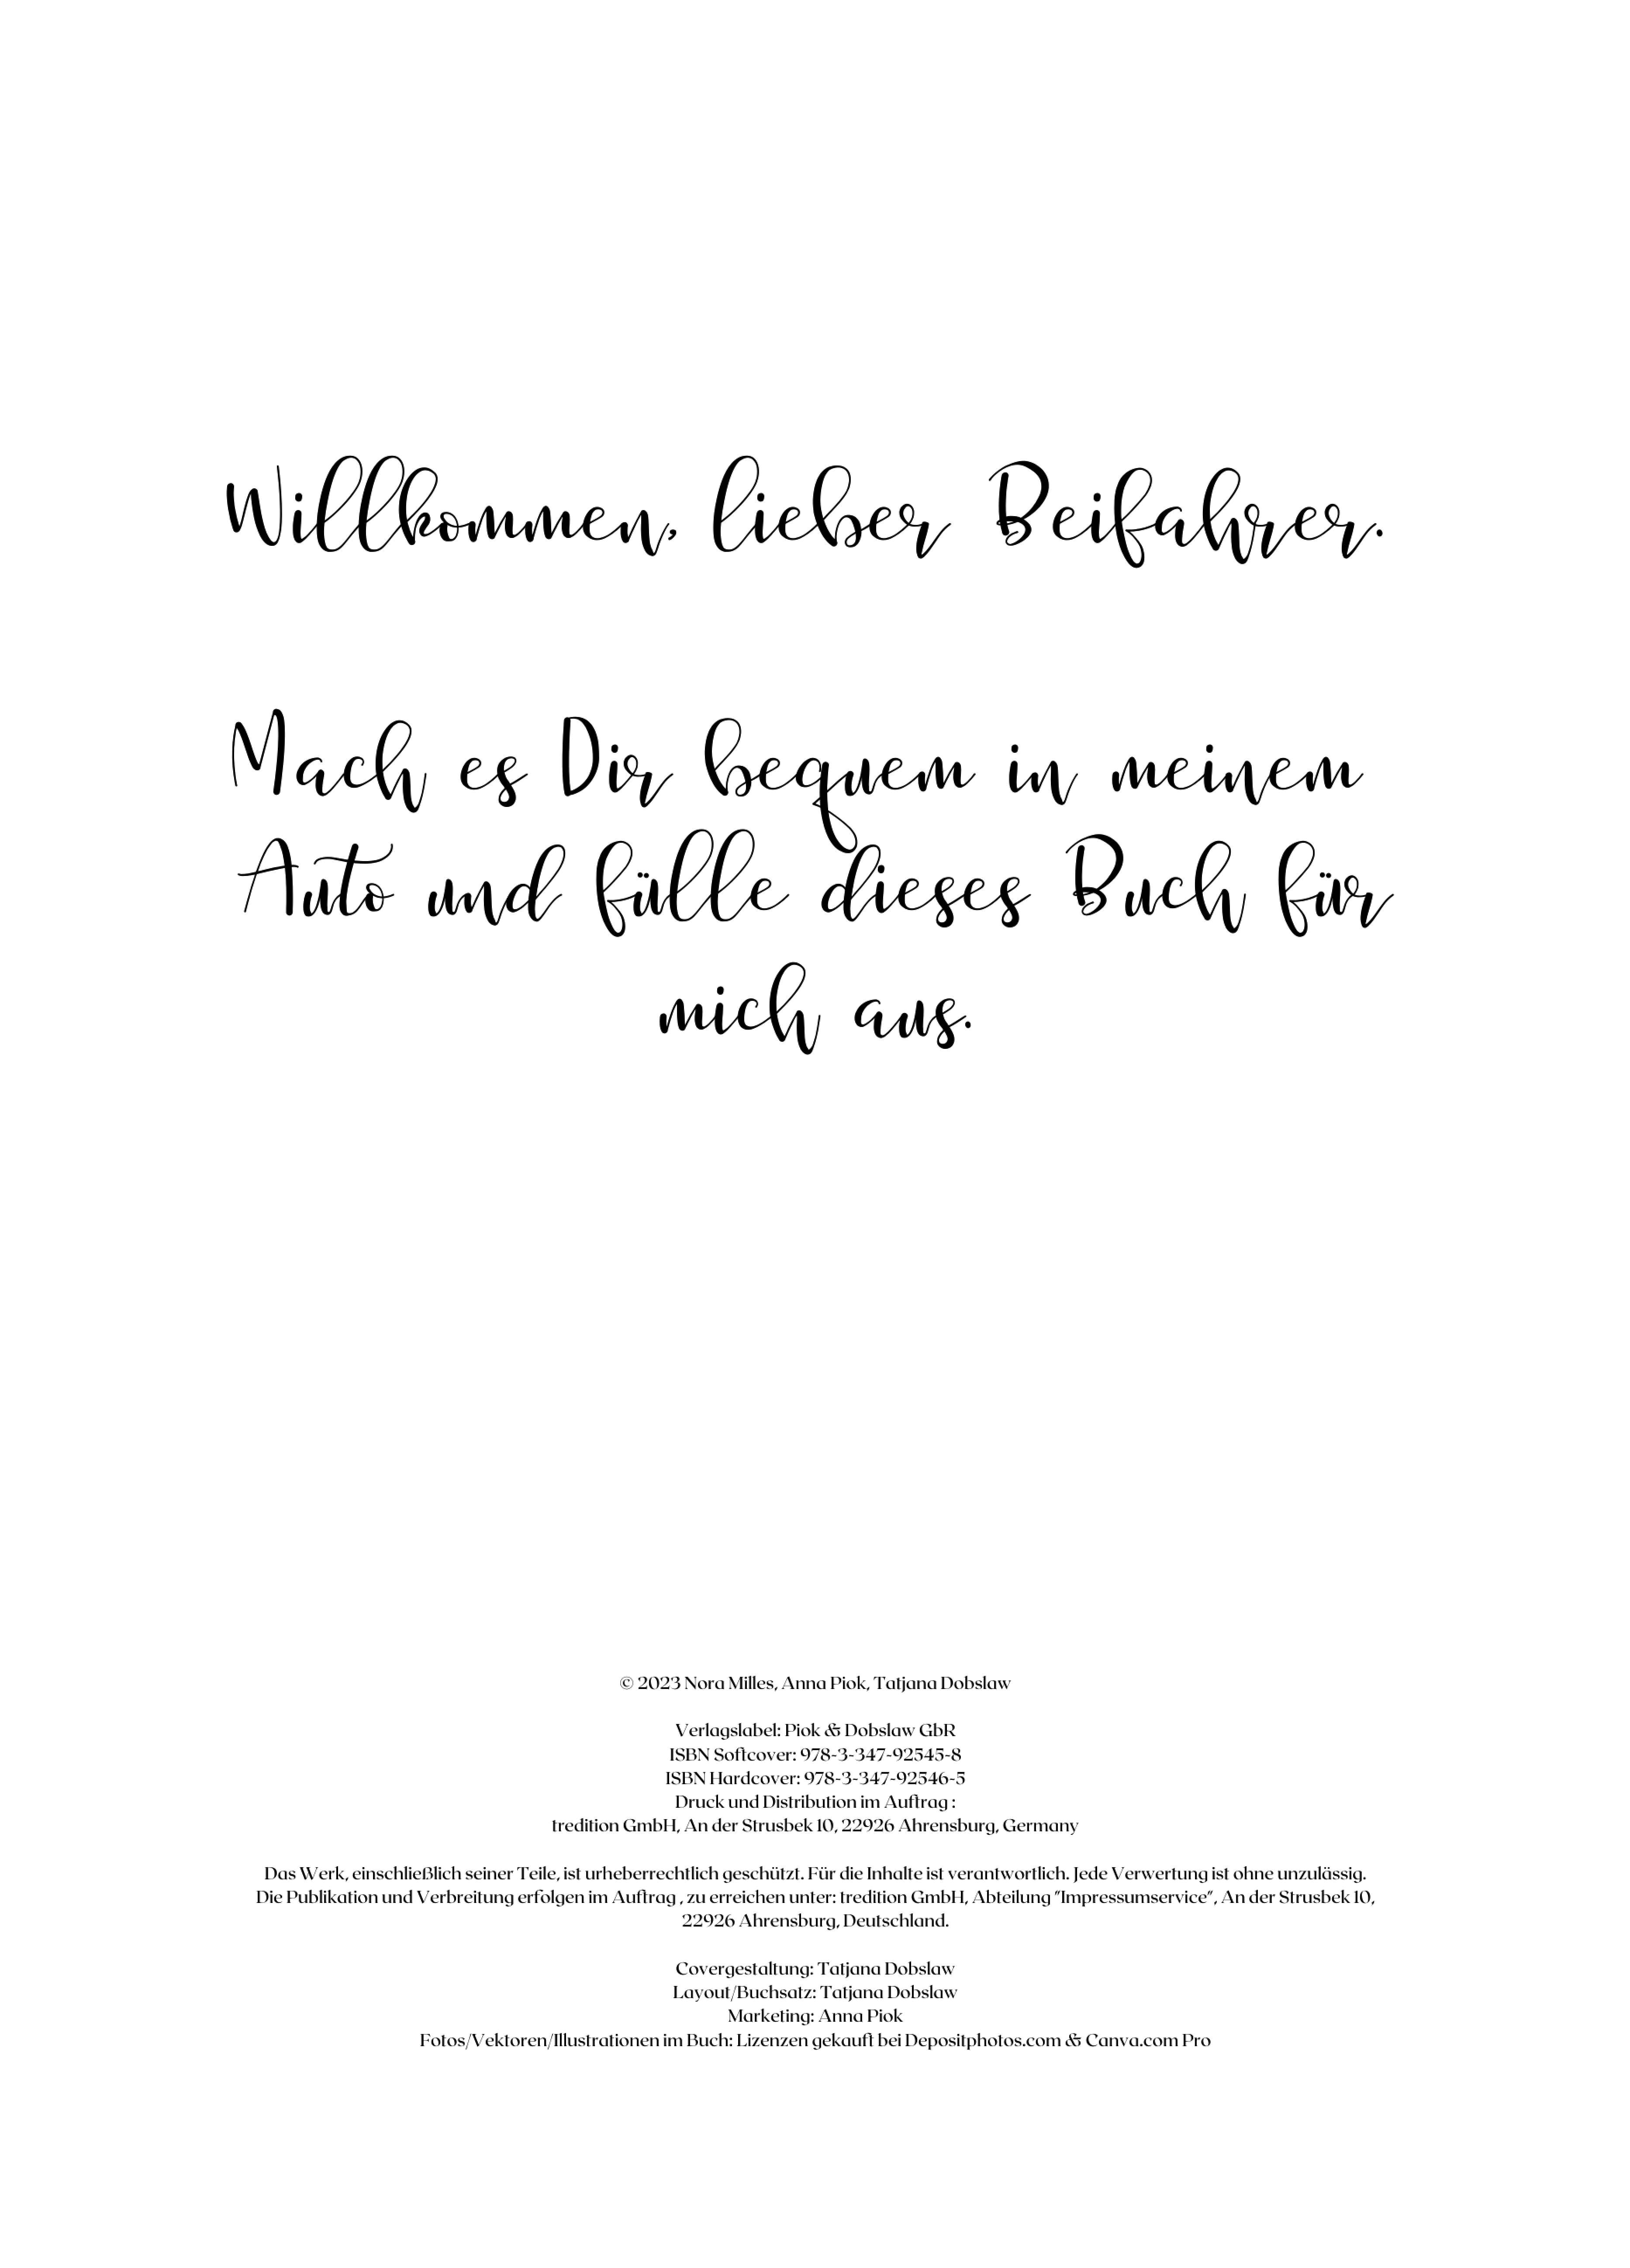 Willkommen, lieber Beifahrer.
Mach es Dir bequem in meinem
Auto und fülle dieses Buch für
mich aus.
© 2023 Nora Milles, Anna Piok, Tatjana Dobslaw
Verlagslabel: Piok & Dobslaw GbR
ISBN Softcover: 978-3-347-92545-8
ISBN Hardcover: 978-3-347-92546-5
Druck und Distribution im Auftrag :
tredition GmbH, An der Strusbek 10, 22926 Ahrensburg, Germany
Das Werk, einschließlich seiner Teile, ist urheberrechtlich geschützt. Für die Inhalte ist verantwortlich. Jede Verwertung ist ohne unzulässig.
Die Publikation und Verbreitung erfolgen im Auftrag , zu erreichen unter: tredition GmbH, Abteilung "Impressumservice", An der Strusbek 10,
22926 Ahrensburg, Deutschland.
Covergestaltung: Tatjana Dobslaw
Layout/Buchsatz: Tatjana Dobslaw
Marketing: Anna Piok
Fotos/Vektoren/Illustrationen im Buch: Lizenzen gekauft bei Depositphotos.com & Canva.com Pro